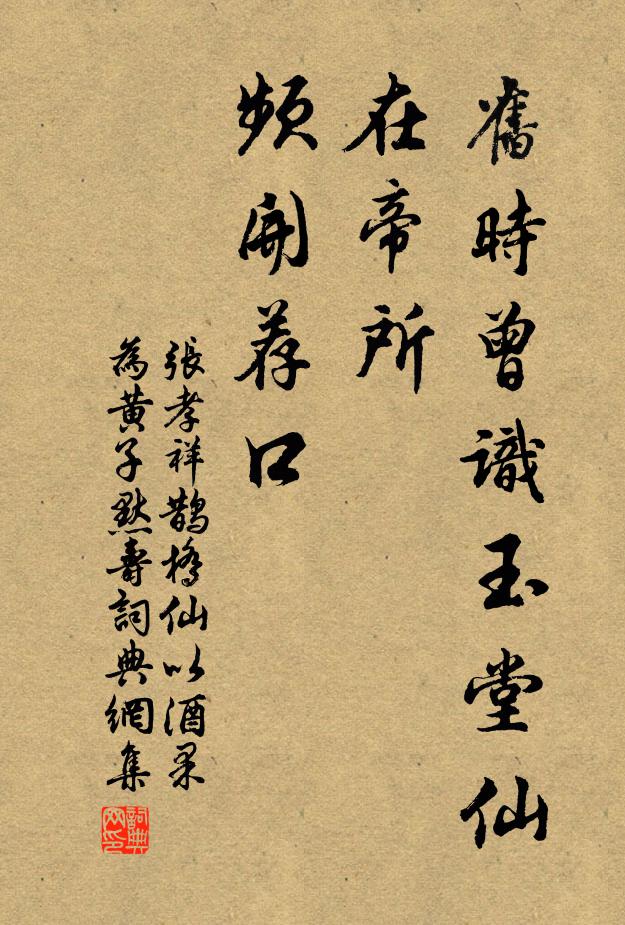 舊時曾識玉堂仙
在帝所
頻開荐口
張孝祥鵲橋仙以酒果
為黃子默壽詞典網集
詞典网印